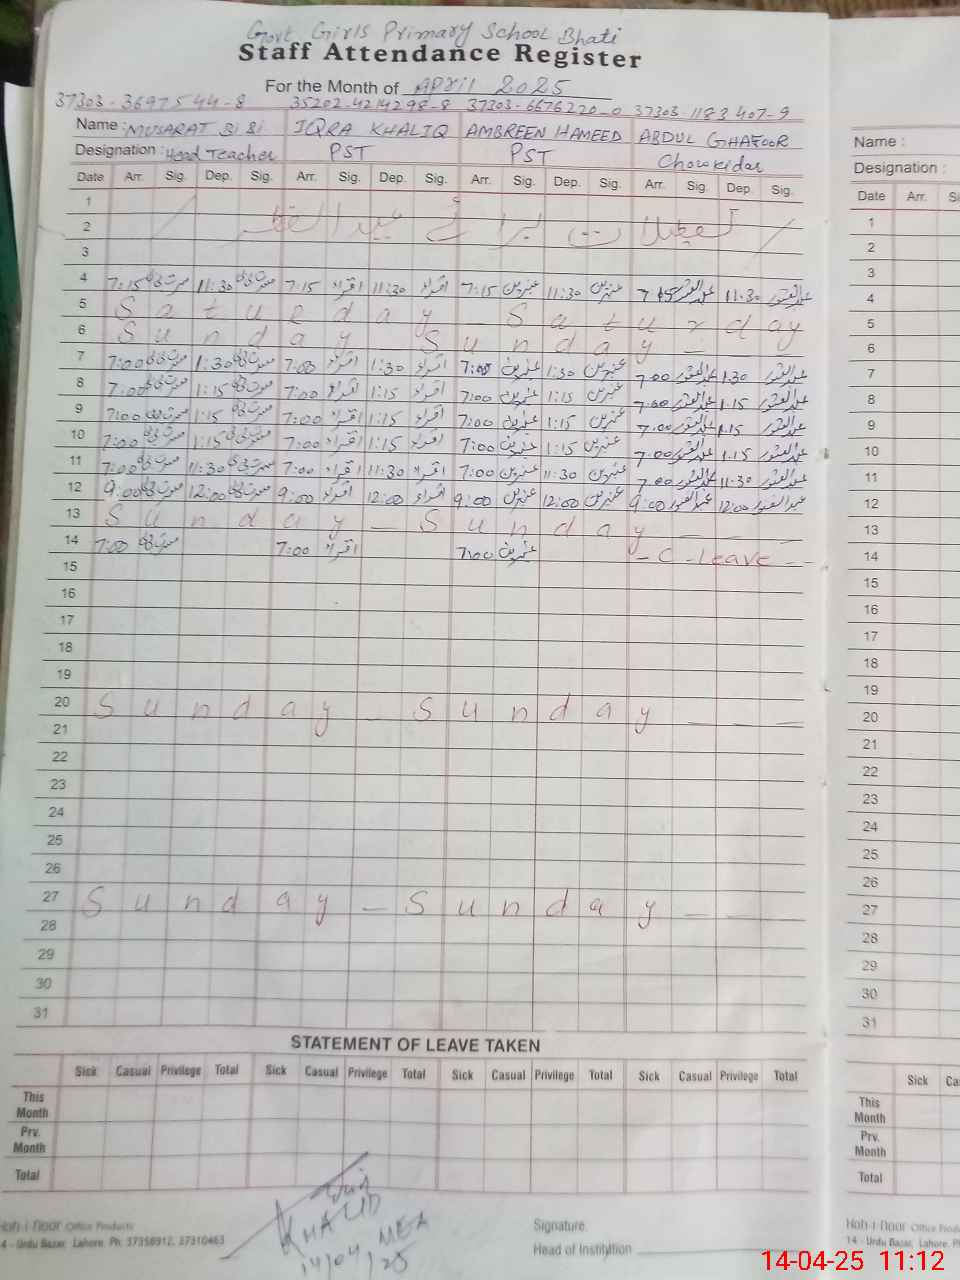 Govt Girls Primary School Bhati
Staff Attendance Register
For the Month of April 2025
37303-3697544-8 35202-4214298-8 37303-6676220-0 37303 1183407-9
Name: MUSARAT BIBI IQRA KHALIQ AMBREEN HAMEED ABDUL GHAFOOR
Designation: Head Teacher PST PST Chowkidar
Date Arr. Sig. Dep. Sig. Arr. Sig. Dep. Sig. Arr. Sig. Dep. Sig. Arr. Sig. Dep. Sig.
1
2 تعطیلات برائے عید الفطر
3
4 7:15 11:30 7:15 اقراء 11:30 اقراء 7:15 عنبرین 11:30 عنبرین 7:15 عبدالغفور 11.30 عبدالغفور
5 Saturday - Saturday
6 Sunday Sunday - - -
7 7:00 1:30 7:00 اقراء 1:30 اقراء 7:00 عنبرین 1:30 عنبرین 7.00 عبدالغفور 1.30 عبدالغفور
8 7:00 1:15 7:00 اقراء 1:15 اقراء 7:00 عنبرین 1:15 عنبرین 7.00 عبدالغفور 1.15 عبدالغفور
9 7:00 1:15 7:00 اقراء 1:15 اقراء 7:00 عنبرین 1:15 عنبرین 7.00 عبدالغفور 1.15 عبدالغفور
10 7:00 1:15 7:00 اقراء 1:15 اقراء 7:00 عنبرین 1:15 عنبرین 7.00 عبدالغفور 1.15 عبدالغفور
11 7:00 11:30 7:00 اقراء 11:30 اقراء 7:00 عنبرین 11:30 عنبرین 7.00 عبدالغفور 11.30 عبدالغفور
12 9:00 12:00 9:00 اقراء 12:00 اقراء 9:00 عنبرین 12:00 عنبرین 9:00 عبدالغفور 12:00 عبدالغفور
13 Sunday - Sunday - - -
14 7:00 7:00 اقراء 7:00 عنبرین - C - Leave - -
15
16
17
18
19
20 Sunday - Sunday - - -
21
22
23
24
25
26
27 Sunday - Sunday - - -
28
29
30
31
STATEMENT OF LEAVE TAKEN
Sick Casual Privilege Total Sick Casual Privilege Total Sick Casual Privilege Total Sick Casual Privilege Total
This Month
Prv. Month
Total
KHALID
MEA
14/04/25
Signature
Head of Institution
Hoh-i-Noor Office Products
4 - Urdu Bazar, Lahore. Ph: 37358912, 37310463
Name :
Designation :
Date Arr.
1
2
3
4
5
6
7
8
9
10
11
12
13
14
15
16
17
18
19
20
21
22
23
24
25
26
27
28
29
30
31
Sick
This Month
Prv. Month
Total
Hoh-i-Noor Office Produ
14 - Urdu Bazar, Lahore. P
14-04-25 11:12